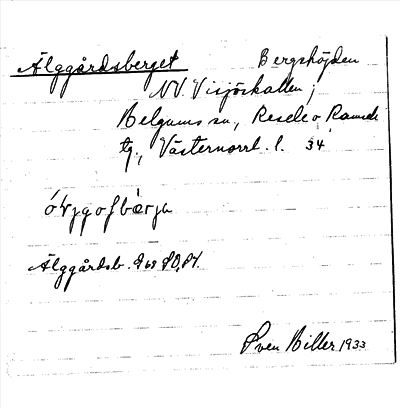 Älggårdsberget Bergshöjden
NV. Visjöskallen;
Helgums sn, Resele o Ramsele
tg., Västernorrl. l. 34
Älggårdsb.
Sven Hiller 1933